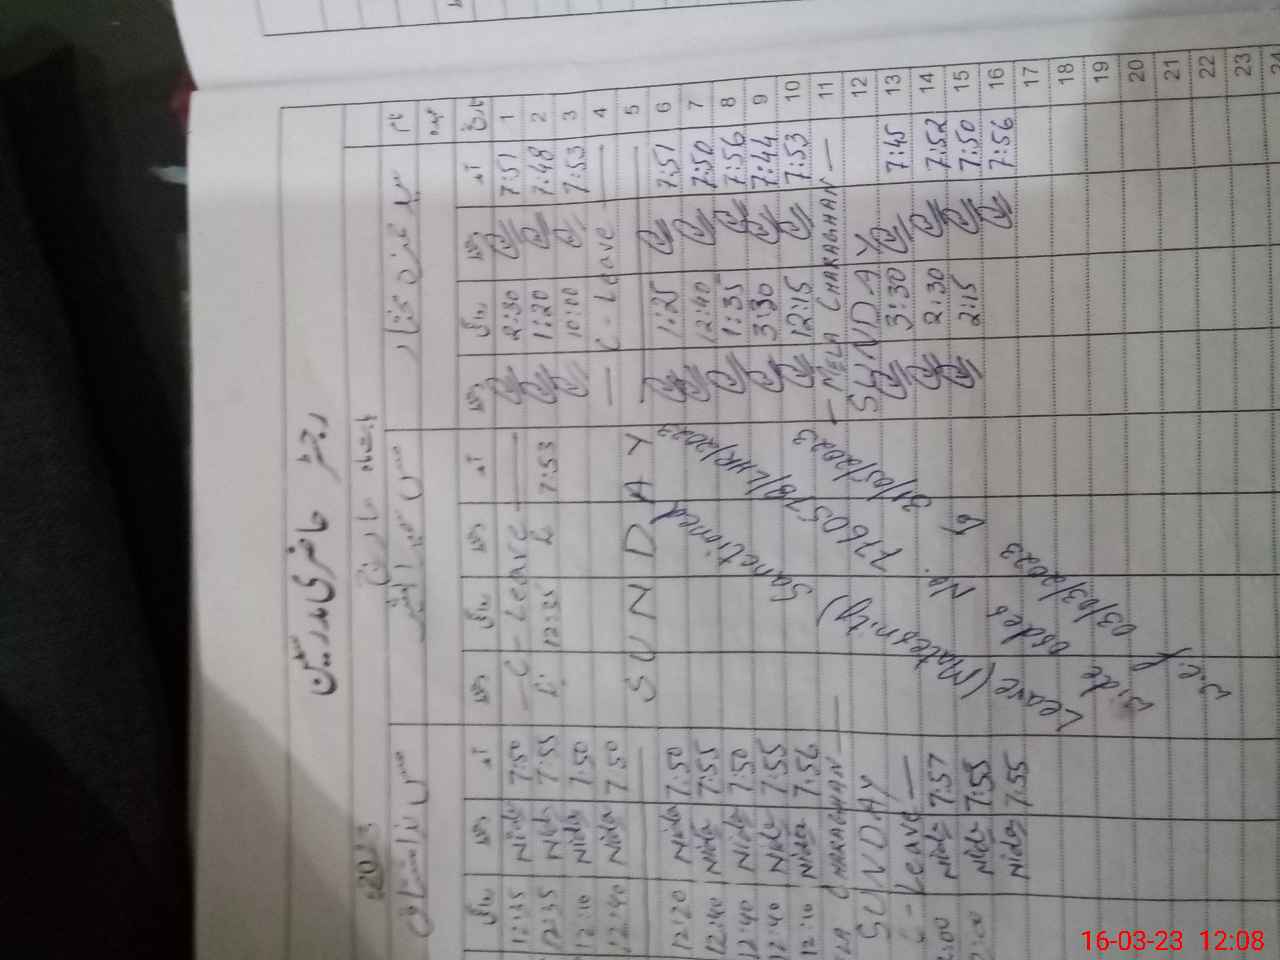 رجسٹر حاضری مدرسین
بابت ماہ مارچ 2023
نام
عہدہ
تاریخ آمد دستخط روانگی دستخط آمد دستخط روانگی دستخط آمد دستخط روانگی
1 7:51 2:30 — C - Leave — 7:50 Nida 12:35
2 7:48 1:20 7:53 12:35 7:55 Nida 12:35
3 7:53 10:00 7:50 Nida 12:10
4 — C - Leave — 7:50 Nida 12:40
5 SUNDAY
6 7:51 1:25 7:50 Nida 12:20
7 7:50 12:40 7:55 Nida 12:40
8 7:56 1:35 7:50 Nida 12:40
9 7:44 3:30 7:55 Nida 12:40
10 7:53 12:15 7:56 Nida 12:10
11 — MELA CHARAGHAN — CHARAGHAN —
12 SUNDAY SUNDAY
13 7:45 3:30 - LEAVE —
14 7:52 2:30 7:57 Nida
15 7:50 2:15 7:55 Nida
16 7:56 7:55 Nida
17
18
19
20
21
22
23
24
Leave (Maternity) Sanctioned
vide order No. 7760578/LHR/2023
w.e.f 03/03/2023 to 31/05/2023
16-03-23 12:08